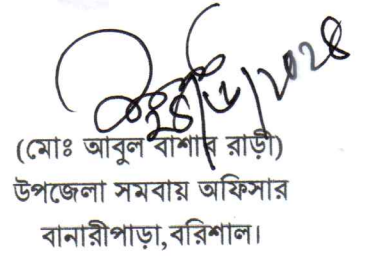 (মোঃ আবুল বাশার রাড়ী)
উপজেলা সমবায় অফিসার
বানারীপাড়া,বরিশাল।